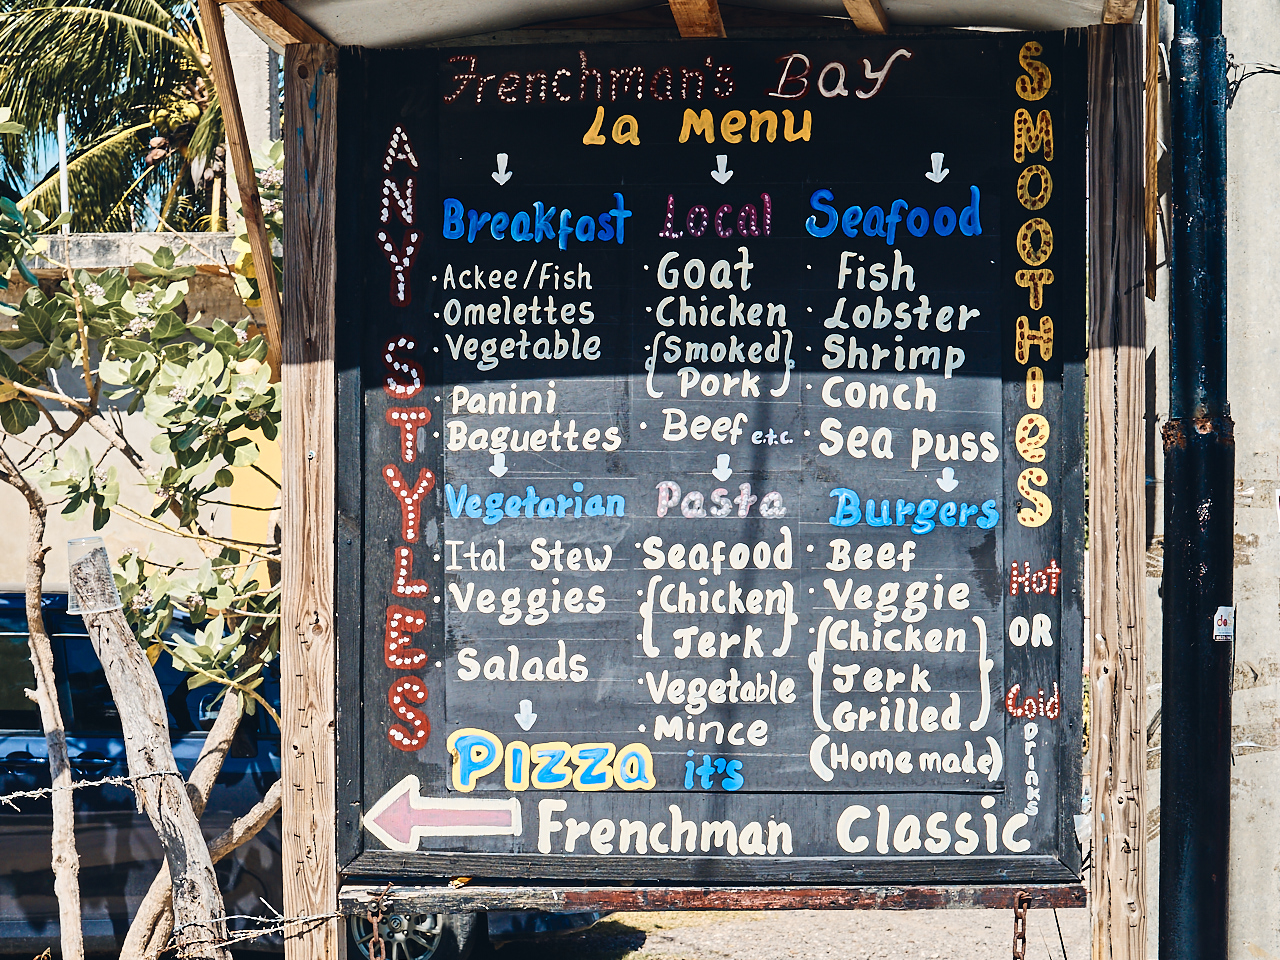 Frenchman's Bay
La Menu
ANY STYLES
Breakfast
· Ackee/Fish
· Omelettes
· Vegetable
· Panini
· Baguettes
Local
· Goat
· Chicken
· {Smoked}
{Pork}
· Beef e.t.c.
Seafood
· Fish
· Lobster
· Shrimp
· Conch
· Sea puss
Vegetarian
· Ital Stew
· Veggies
· Salads
Pasta
· Seafood
· {Chicken}
· {Jerk}
· Vegetable
· Mince
Burgers
· Beef
· Veggie
{Chicken
Jerk
Grilled}
(Home made)
Pizza it's
Frenchman Classic
SMOOTHIeS
Hot
OR
Cold
Drinks